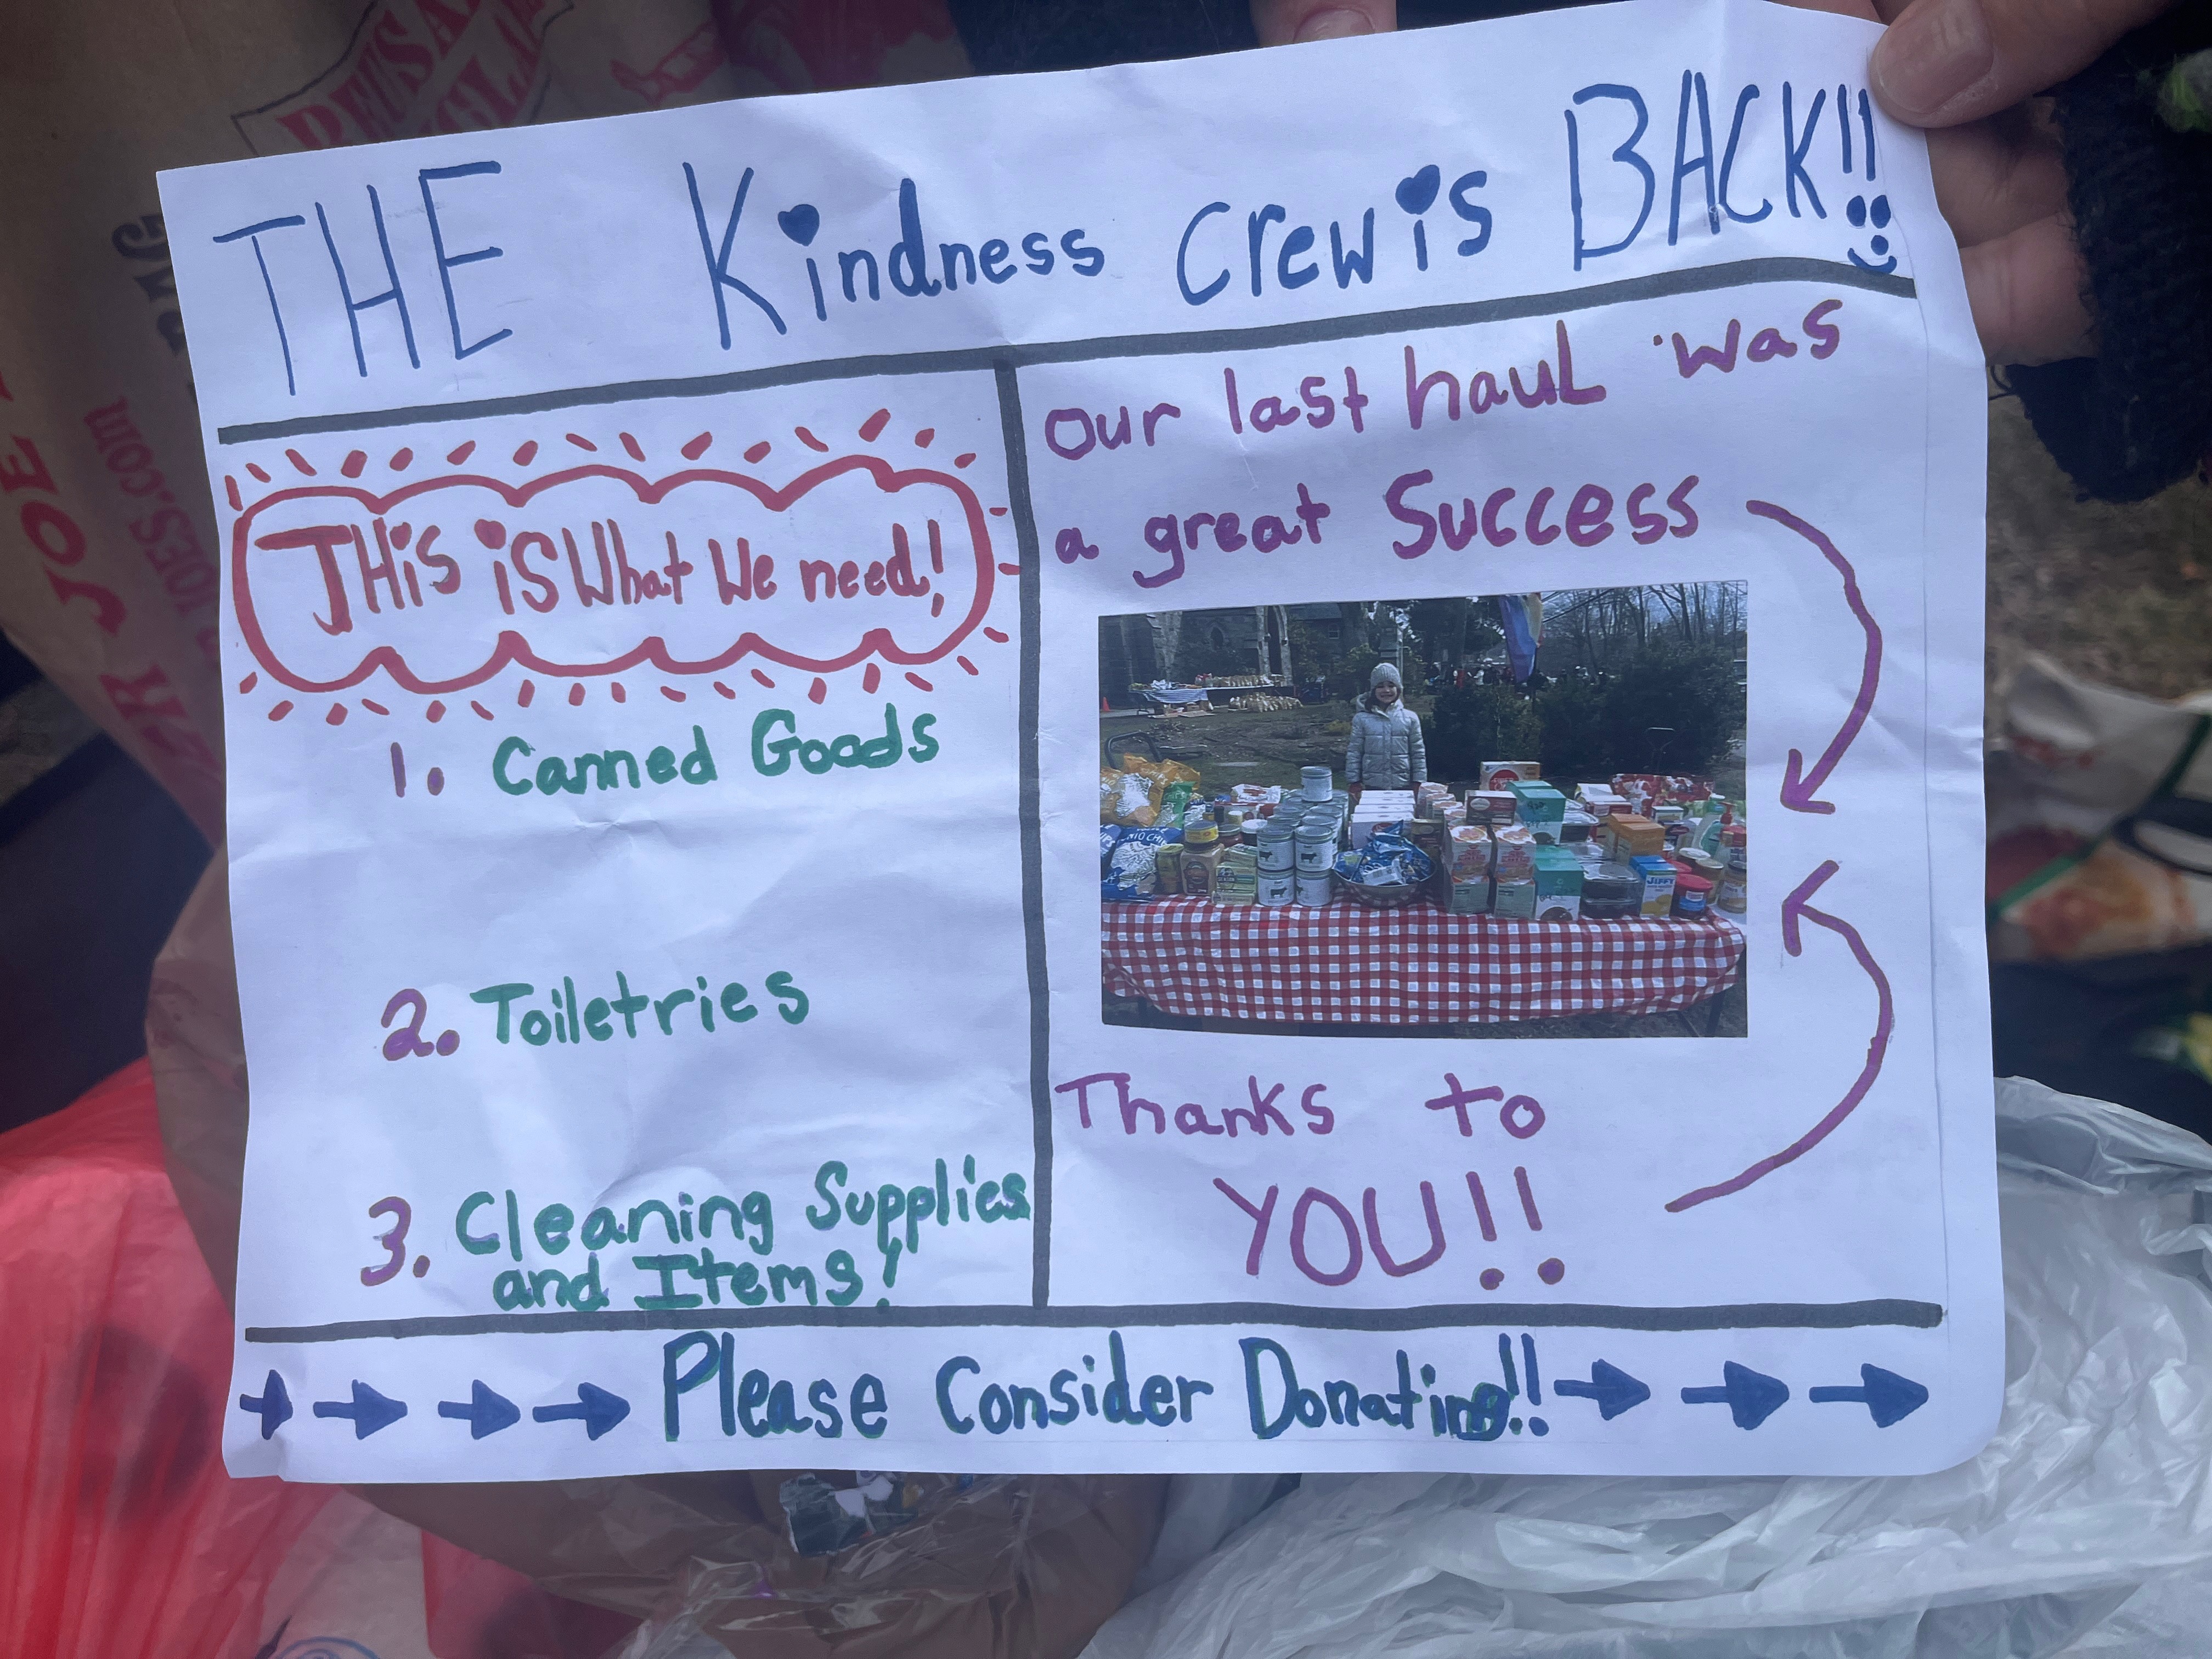 THE Kindness Crew is BACK!!
THiS iS What We need!
1. Canned Goods
2. Toiletries
3. Cleaning Supplies
and Items!
our last haul was
a great Success
JIFFY
Thanks to
YOU!!
Please Consider Donating!!
JOE
JOES.com
BAG